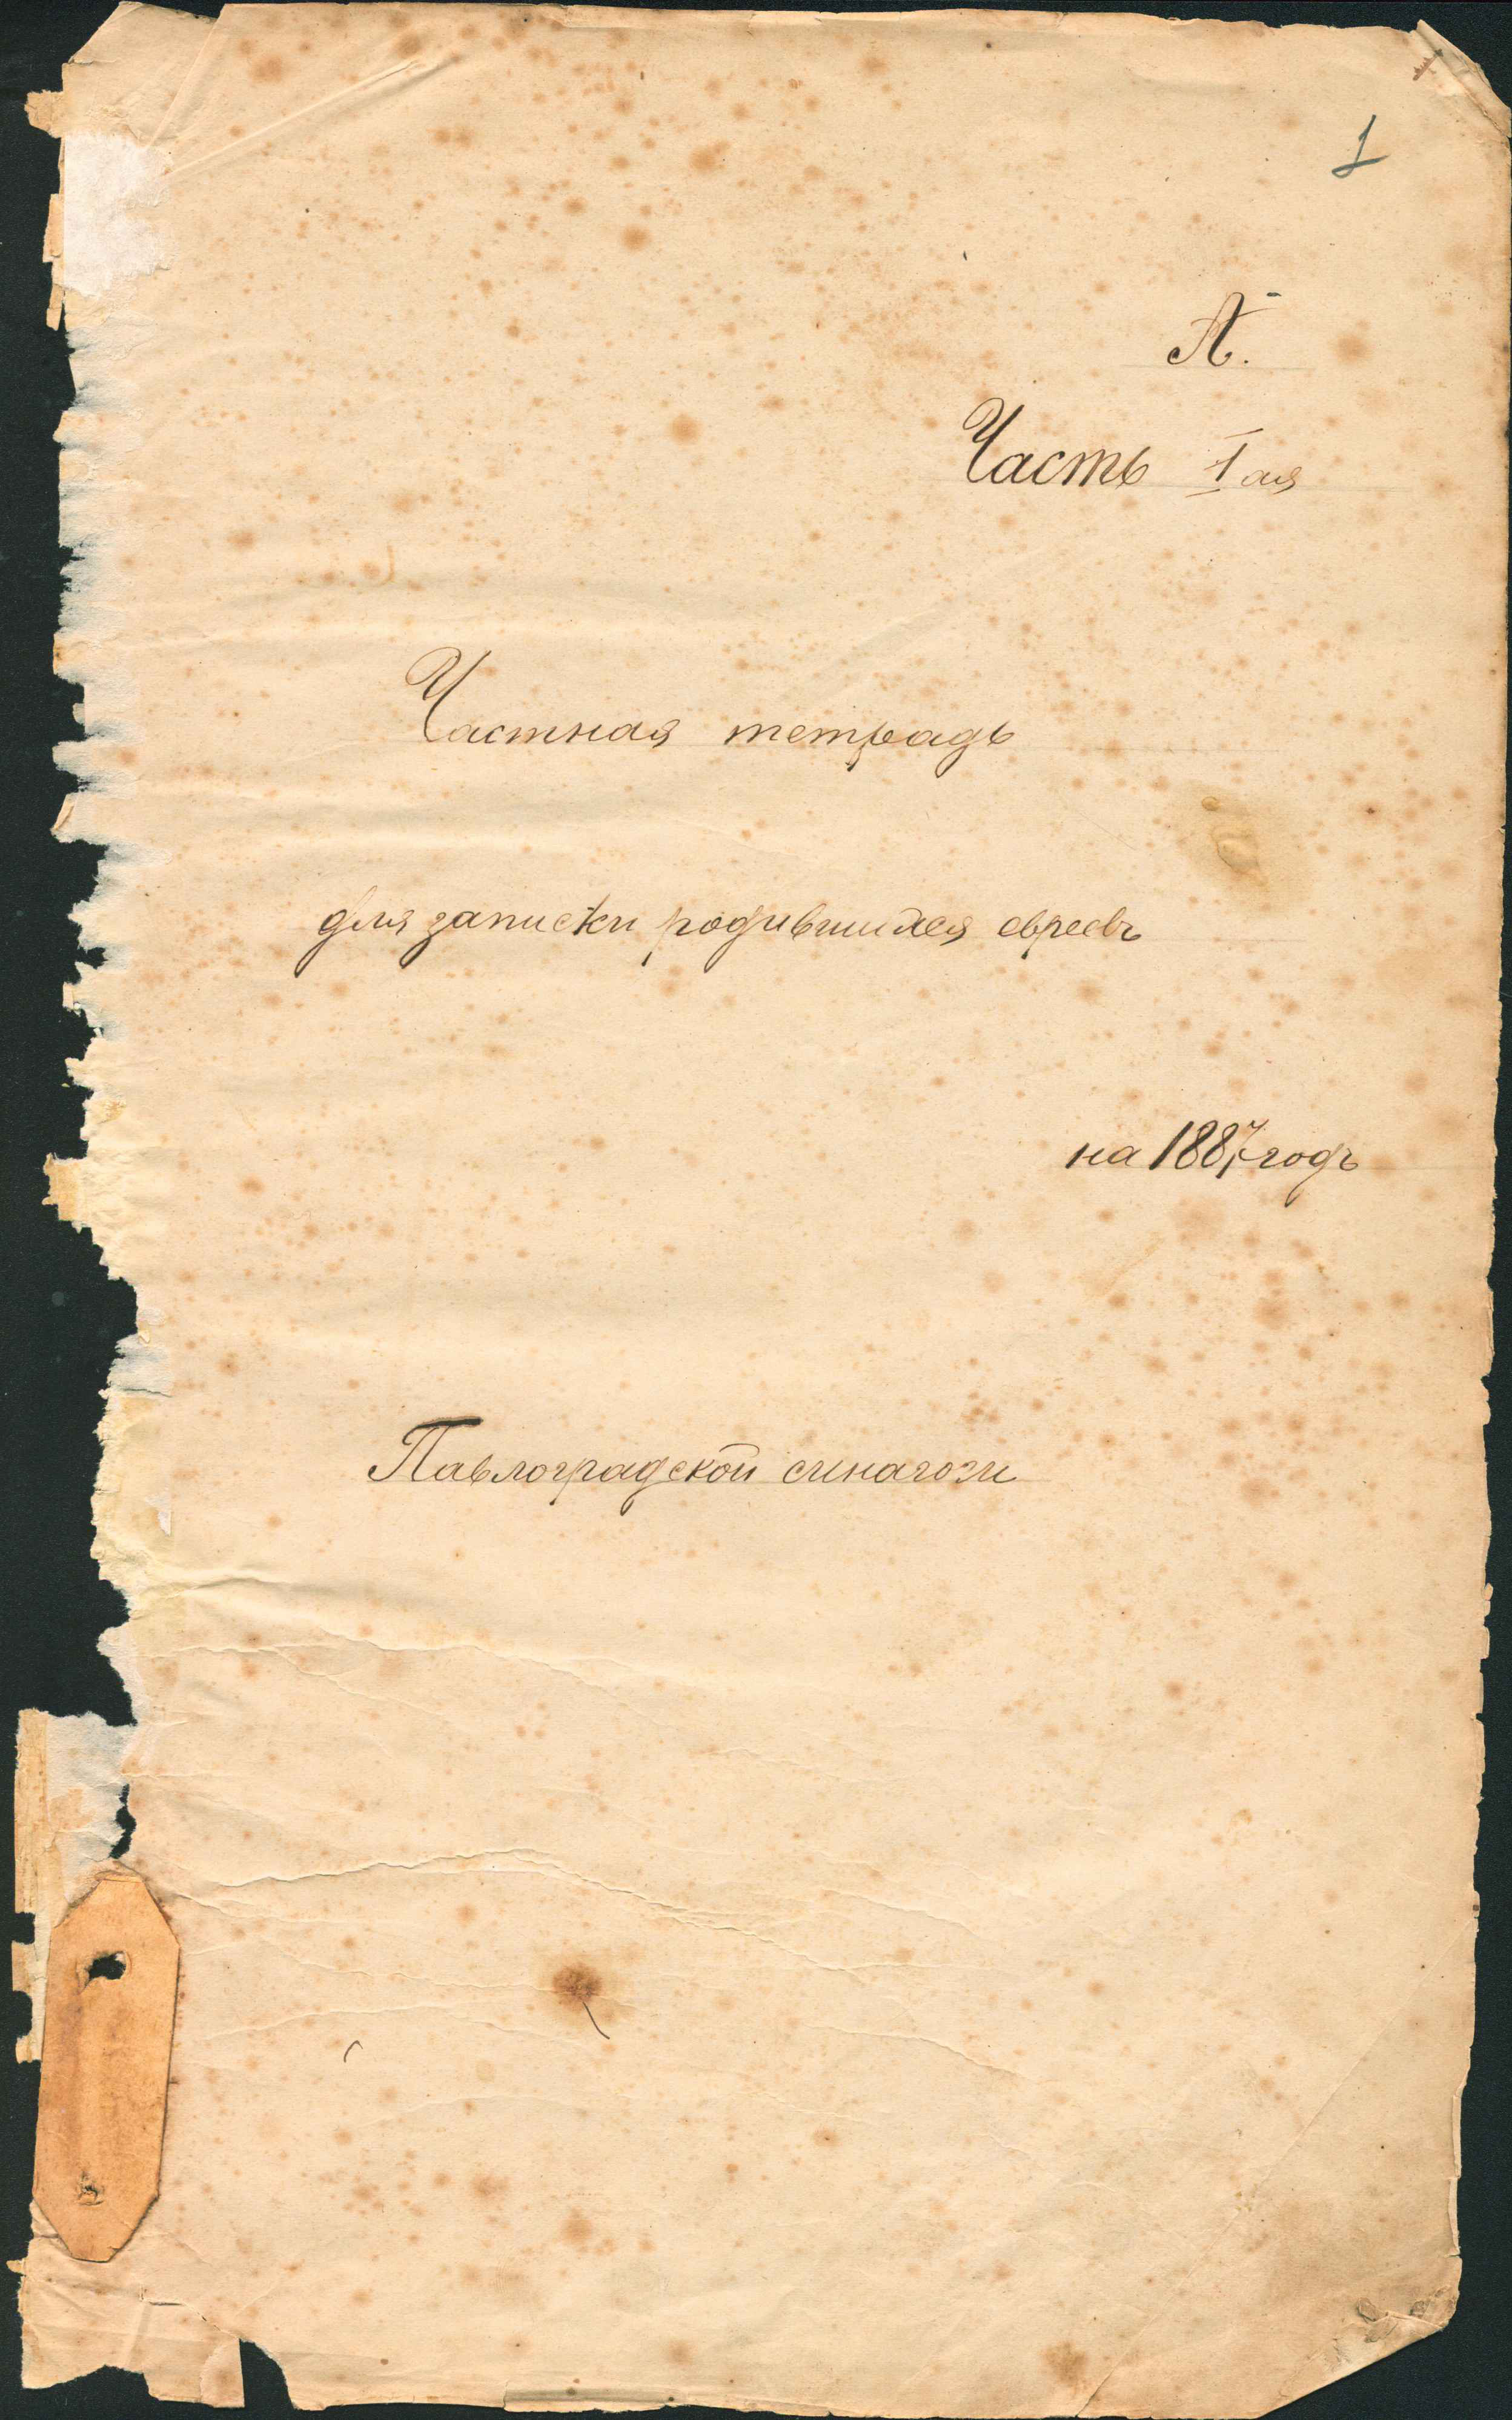 1
А.
Часть 1ая
Частная тетрадь
для записки родившихся евреевъ
на 1887 годъ
Павлоградской синагоги